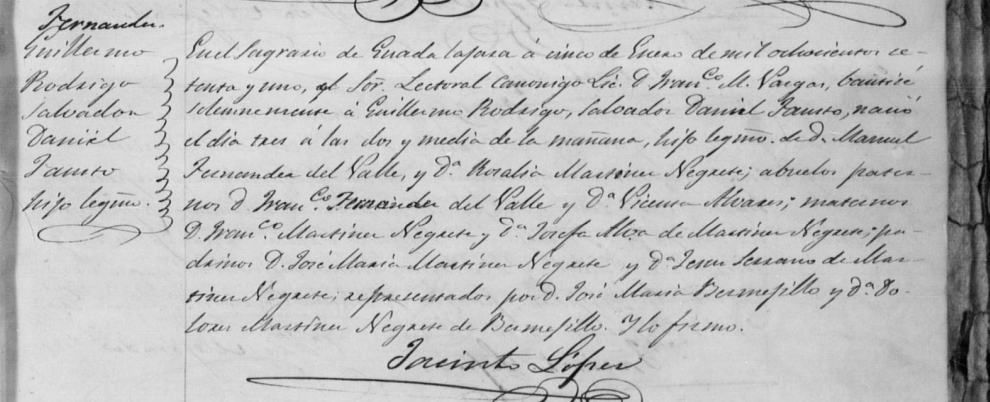 Fernandez.
Guillermo
Rodrigo
Salvador
Daniel
Fausto
hijo legmo.
En el Sagrario de Guadalajara á cinco de Enero de mil ochocientos se-
tenta y uno, el Sor. Lectoral Canonigo Lic. D. Franco. M. Vargas, bautizó
solemnemente á Guillermo Rodrigo, Salvador Daniel Fausto, nació
el dia tres á las dos y media de la mañana, hijo legmo. de d. Manuel
Fernandez del Valle, y da. Rosalia Martinez Negrete; abuelos pater-
nos d. Franco. Fernandez del Valle y da. Vicenta Alvares; maternos
D. Franco. Martinez Negrete y da. Josefa Alva de Martinez Negrete; pa-
drinos D. José Maria Martinez Negrete y da. Jesus Serrano de Mar-
tinez Negrete; representados por d. José Maria Bermejillo y da. Do-
lores Martinez Negrete de Bermejillo. Y lo firmo.
Jacinto López